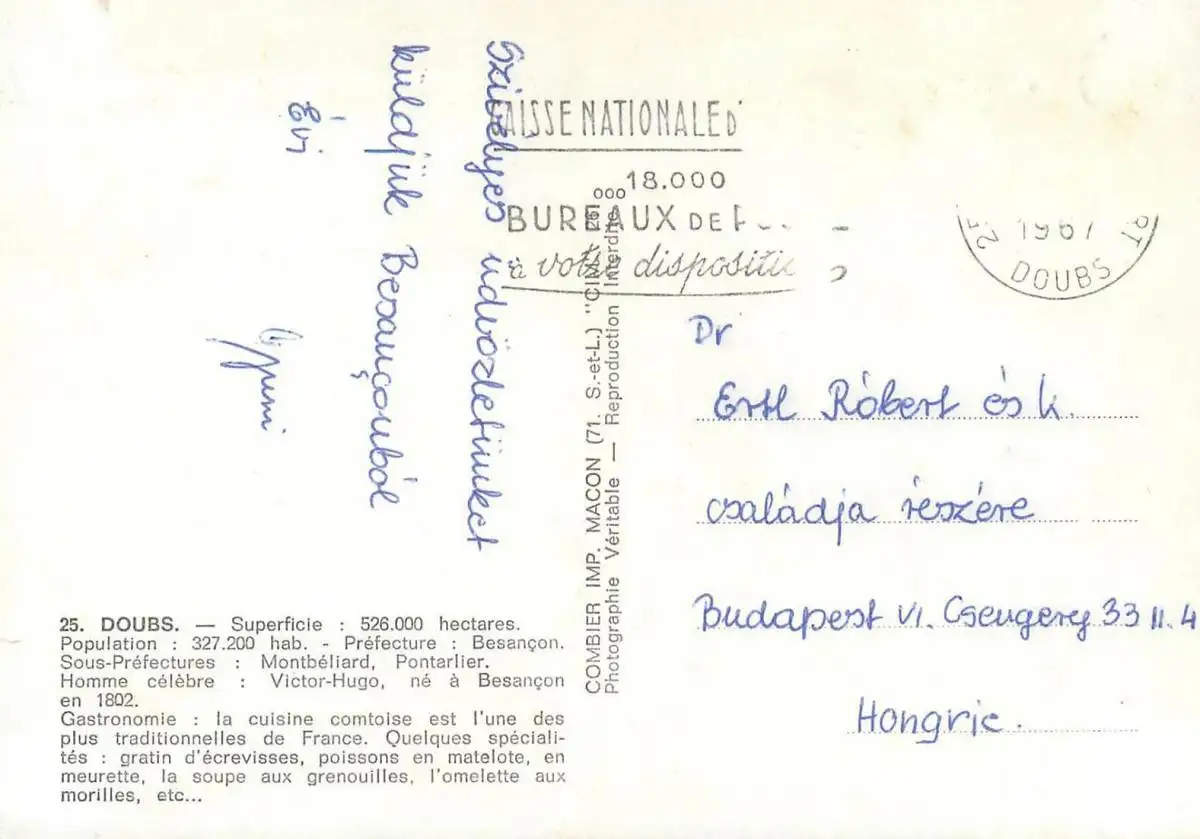 Szivélyes üdvözletünket
küldjük Besançonból
Évi
AISSE NATIONALE D'
18.000
BUREAUX DE P
à votre disposition
25 1967
DOUBS
Dr
Ertl Róbert és k.
családja részére
Budapest VI. Csengery 33 II. 4
Hongrie.
COMBIER IMP. MACON (71. S.-et-L.) "CIM"
Photographie Véritable — Reproduction Interdite
25. DOUBS. — Superficie : 526.000 hectares.
Population : 327.200 hab. - Préfecture : Besançon.
Sous-Préfectures : Montbéliard, Pontarlier.
Homme célèbre : Victor-Hugo, né à Besançon
en 1802.
Gastronomie : la cuisine comtoise est l'une des
plus traditionnelles de France. Quelques spéciali-
tés : gratin d'écrevisses, poissons en matelote, en
meurette, la soupe aux grenouilles, l'omelette aux
morilles, etc...